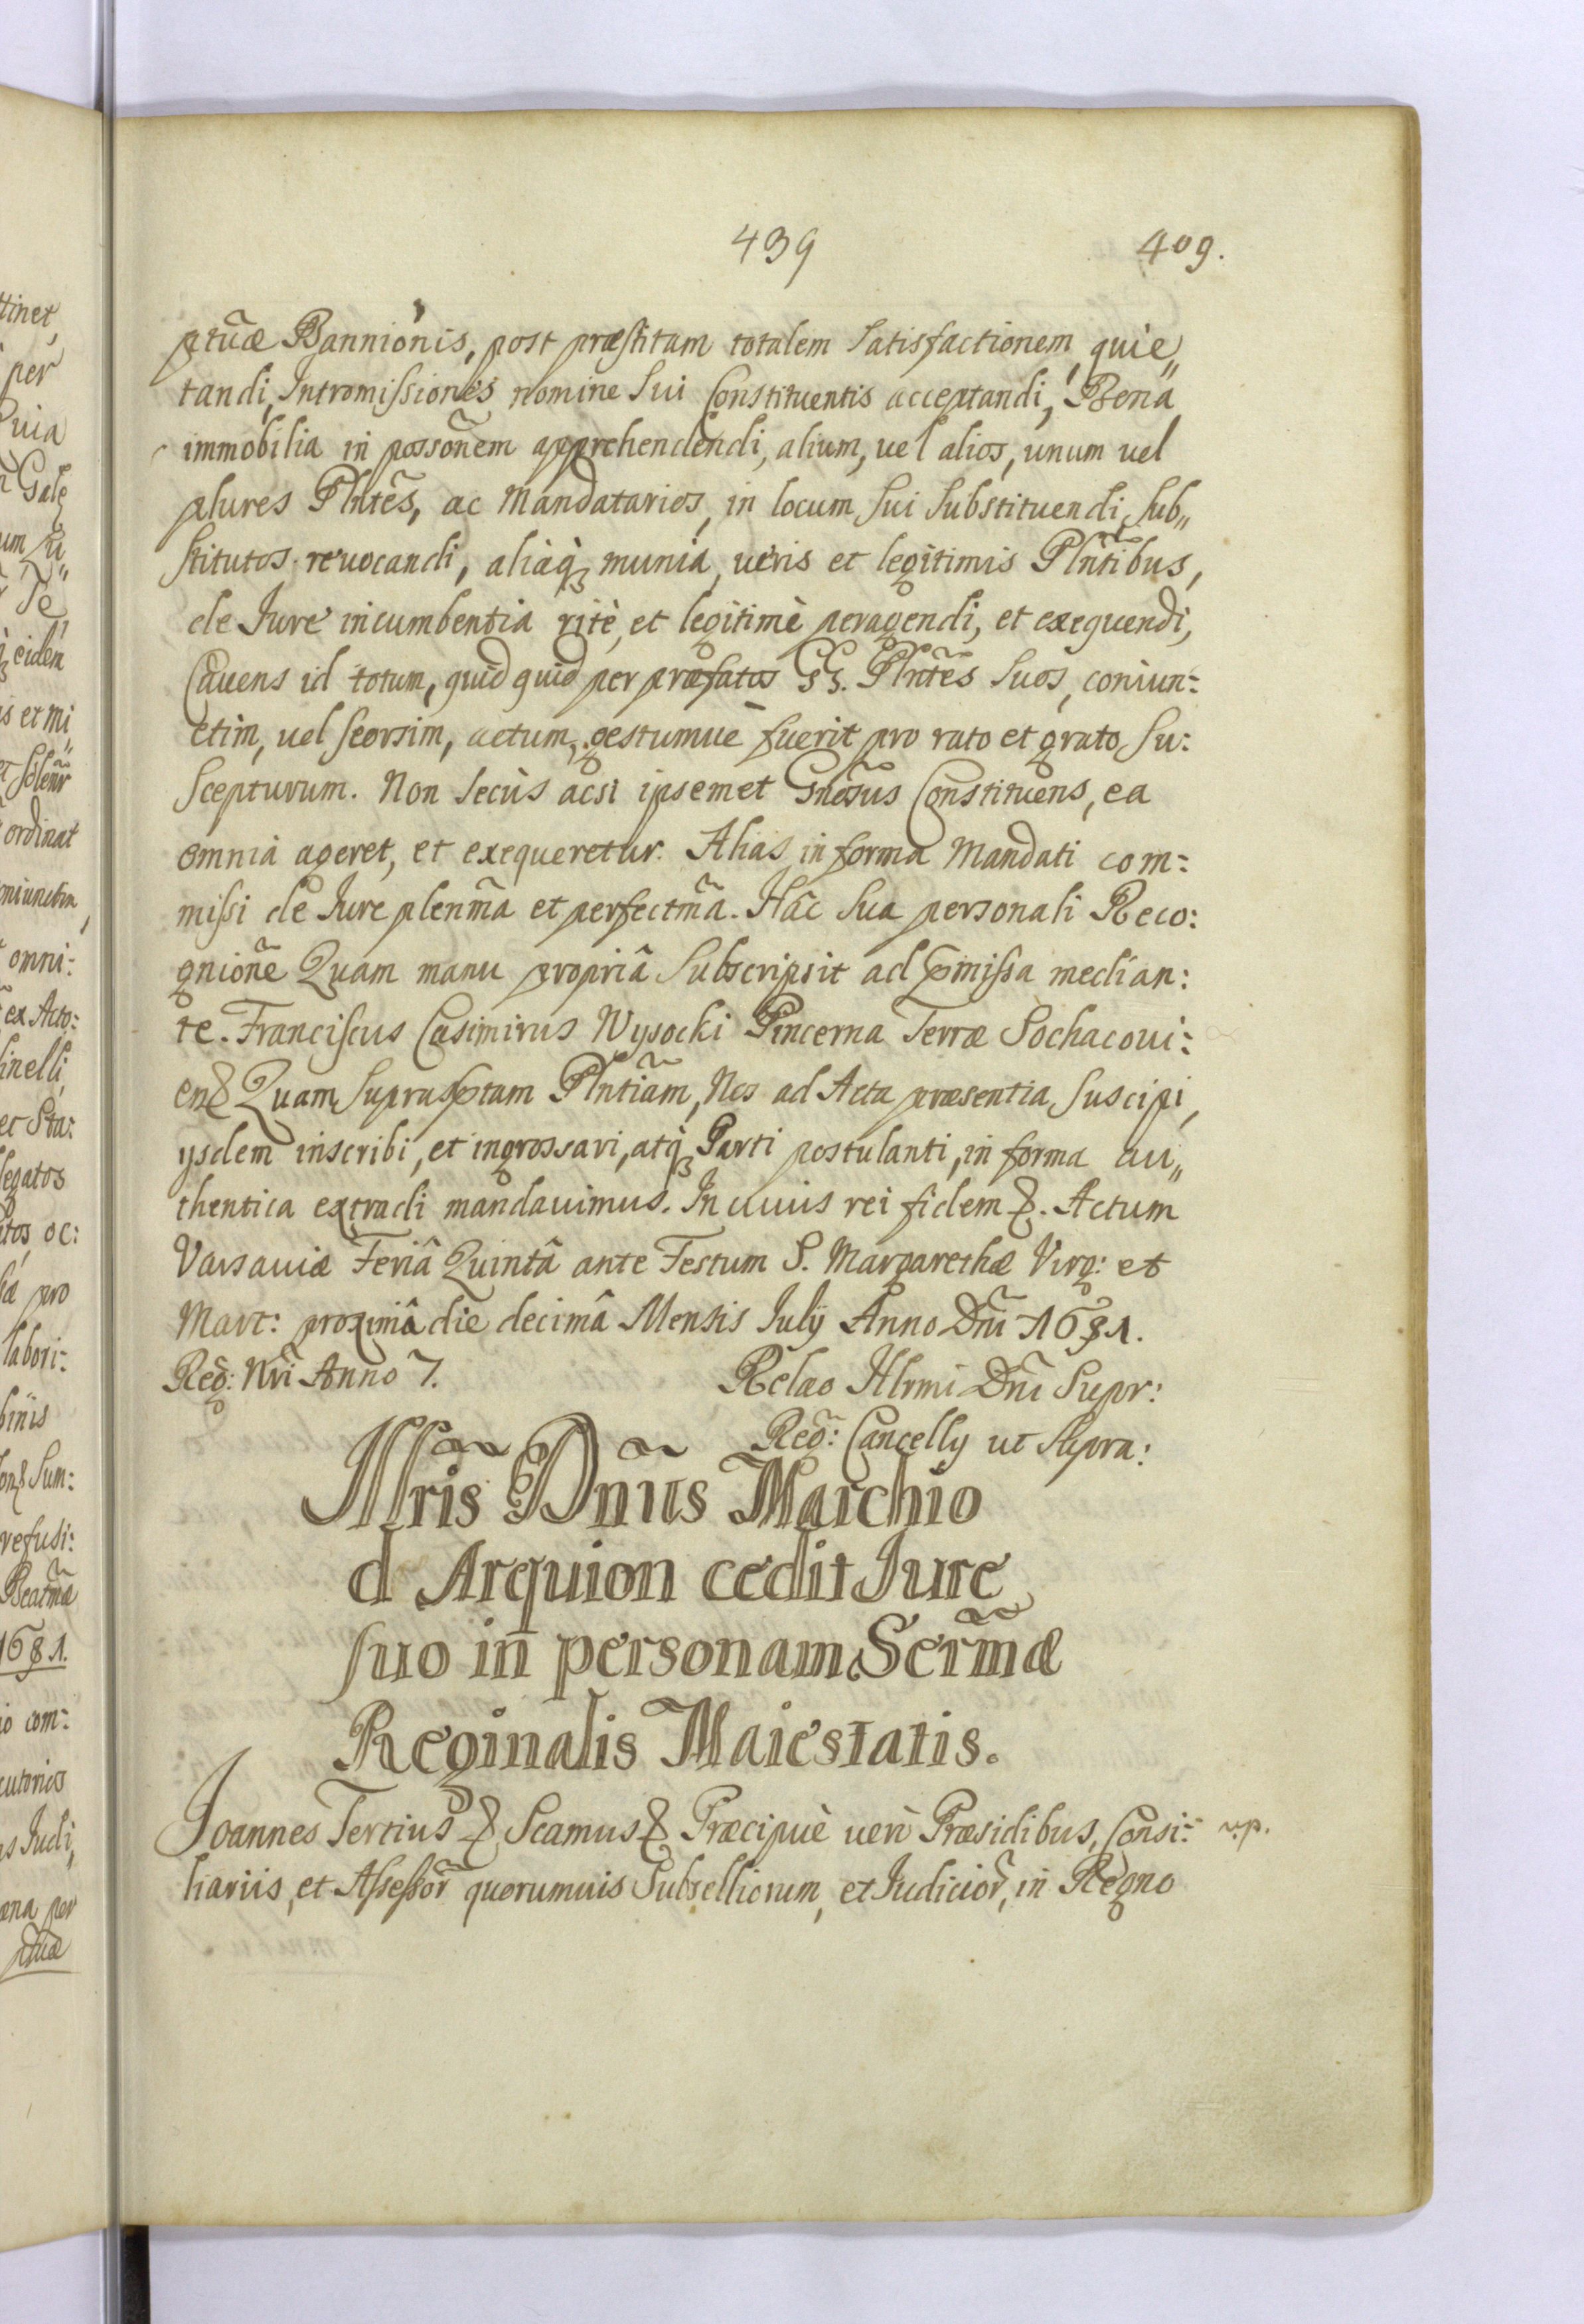 439 409.
ptuæ Bannionis, post præstitam totalem Satisfactionem, quie„
tandi, Intromissiones nomine Sui Constituentis acceptandi, Bona
immobilia in possonem apprehendendi, alium, uel alios, unum uel
plures Plntes, ac Mandatarios, in locum Sui Substituendi, Sub„
stitutos reuocandi, aliaq; munia, ueris et legitimis Plntibus,
de Iure incumbentia ritè, et legitimè peragendi, et exequendi,
Cauens id totum, quidquid per præfatos GG. Plntes Suos, coniun:
ctim, uel Seorsim, actum, gestumue fuerit pro rato et grato Su:
Scepturum. Non Secùs acsi ipsemet Gnosus Constituens, ea
omnia ageret, et exequeretur. Alias in forma Mandati com:
missi de Iure plenma et perfectma. Hâc Sua personali Reco:
gnione Quam manu propriâ Subscripsit ad pmissa median:
te. Franciscus Casimirus Wysocki Pincerna Terræ Sochacoui:
en& Quam Suprasptam Plntiam, Nos ad Acta præsentia Suscipi,
ysdem inscribi, et ingrossari, atq; Parti postulanti, in forma au„
thentica extradi mandauimus. In cuius rei fidem &. Actum
Varsauiæ Feriâ Quintâ ante Festum S. Margarethæ Virg: et
Mart: proximâ die decimâ Mensis July Anno Dni 1681.
Reg: Nri Anno 7. Relao Illrmi Dni Supr:
Reg: Cancelly ut Supra:
Illris Dnus Marchio
d Arquion cedit Iure
suo in personam Sermæ
Reginalis Maiestatis.
Ioannes Tertius & Scamus & Præcipuè uerò Præsidibus, Consi: np.
liariis, et Assessor quorumuis Subselliorum, et Iudicior, in Regno